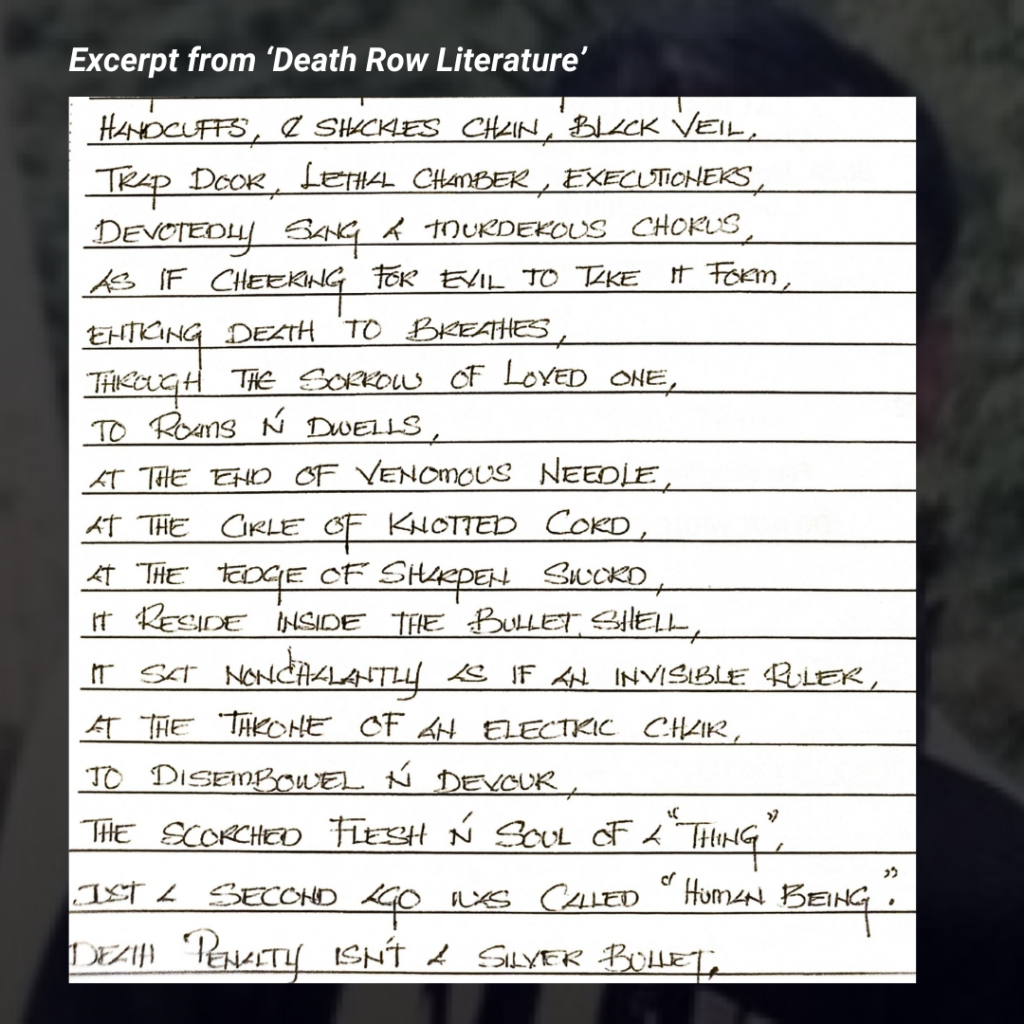 Excerpt from ‘Death Row Literature’
HANDCUFFS, & SHACKLES CHAIN, BLACK VEIL,
TRAP DOOR, LETHAL CHAMBER, EXECUTIONERS,
DEVOTEDLY SANG A MURDEROUS CHORUS,
AS IF CHEERING FOR EVIL TO TAKE IT FORM,
ENTICING DEATH TO BREATHES,
THROUGH THE SORROW OF LOVED ONE,
TO ROAMS N' DWELLS,
AT THE END OF VENOMOUS NEEDLE,
AT THE CIRLE OF KNOTTED CORD,
AT THE EDGE OF SHARPEN SWORD,
IT RESIDE INSIDE THE BULLET SHELL,
IT SAT NONCHALANTLY AS IF AN INVISIBLE RULER,
AT THE THRONE OF AN ELECTRIC CHAIR,
TO DISEMBOWEL N' DEVOUR,
THE SCORCHED FLESH N' SOUL OF A "THING",
JUST A SECOND AGO WAS CALLED "HUMAN BEING".
DEATH PENALTY ISN'T A SILVER BULLET,